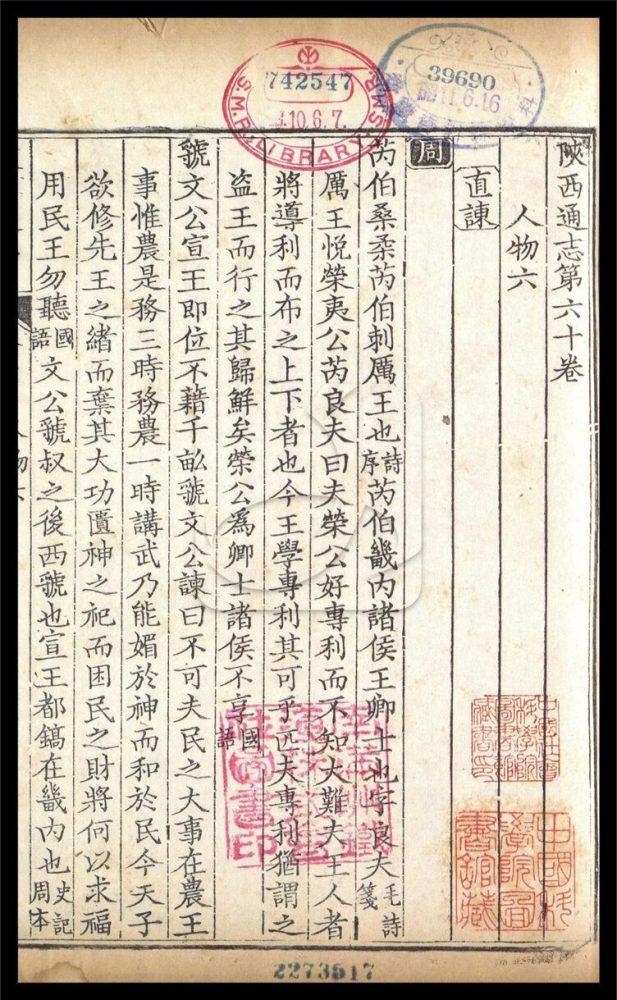 742547
S.M.R. LIBRARY S.M.R.
10.6.7.
39690
11.6.16
陝西通志第六十卷
人物六
直諫
周
芮伯桑柔芮伯刺厲王也詩序芮伯畿內諸侯王卿士也字良夫毛詩箋
厲王悅榮夷公芮良夫曰夫榮公好專利而不知大難夫王人者
將導利而布之上下者也今王學專利其可乎匹夫專利猶謂之
盜王而行之其歸鮮矣榮公爲卿士諸侯不享國語
虢文公宣王即位不藉千畝虢文公諫曰不可夫民之大事在農王
事惟農是務三時務農一時講武乃能媚於神而和於民今天子
欲修先王之緒而棄其大功匱神之祀而困民之財將何以求福
用民王勿聽國語文公虢叔之後西虢也宣王都鎬在畿內也史記周本
中國科學院圖書館藏
2273617